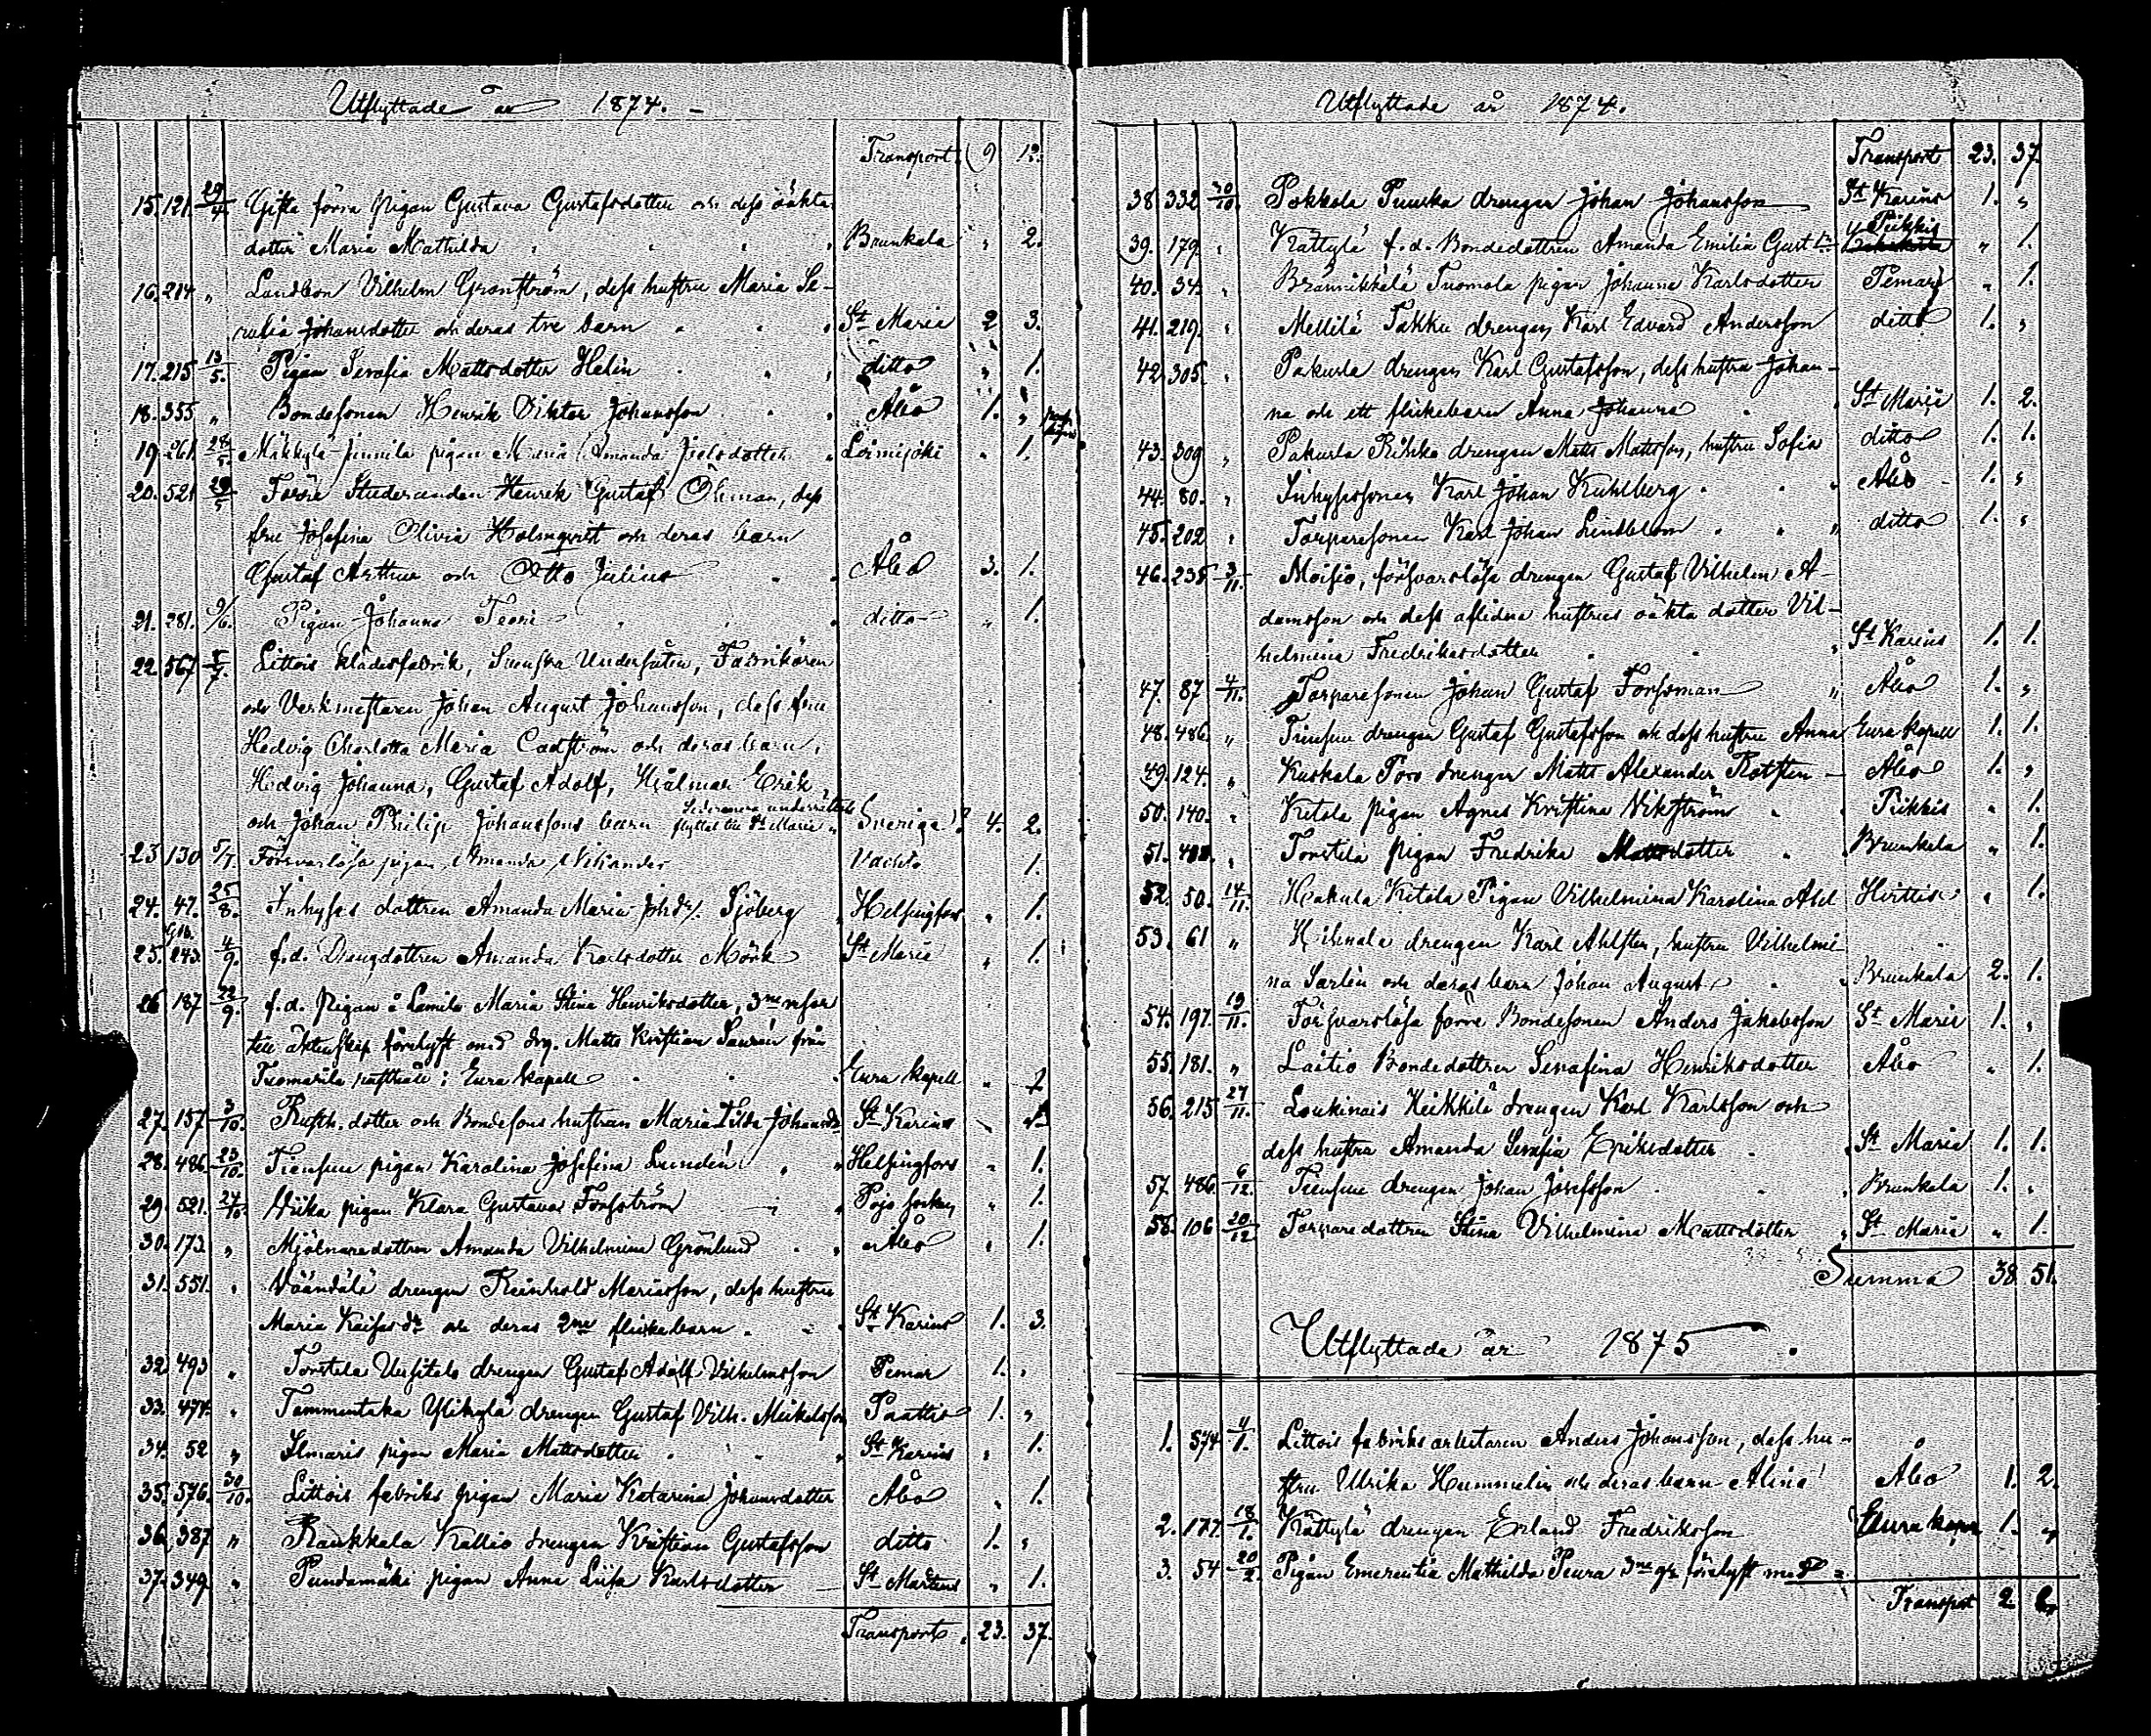 Utflyttade år 1874. –
Transport. 9 12.
15. 121. 29/4 Gifta förra pigan Gustava Gustafsdotter och dess oäkta
dotter Maria Mathilda Brunkala „ 2.
16. 214 „ Landbon Vilhelm Granström, dess hustru Maria Se-
rafia Johansdotter och deras tre barn St Maria 2 3.
17. 215 13/5. Pigan Serafia Mattsdotter Helin ditto „ 1.
18. 355 „ Bondesonen Henrik Viktor Johansson Åbo 1. „
19 261. 28/5. Mäkkylä Junnila pigan Maria Amanda Joelsdotter Loimijoki „ 1.
20. 521 29/5 Förre Studeranden Henrik Gustaf Öhman, dess
fru Josefina Olivia Holmqvist och deras barn
Gustaf Arthur och Otto Julius Åbo 3. 1.
21. 281. 9/6. Pigan Johanna Teori ditto „ 1.
22 567 5/7. Littois klädesfabrik, Svenska Undersåten, Fabrikören
och Verkmästaren Johan August Johansson, dess fru
Hedvig Charlotta Maria Cadström och deras barn,
Hedvig Johanna, Gustaf Adolf, Hjalmar Erik
och Johan Philip Johanssons barn flyttat till St Marie Sverige? 4. 2.
23 130 5/7 Försvarslösa pigan Amanda Vikander Vachto 1.
24. 47. 25/8. Inhyses dottren Amanda Maria Johdr Sjöberg Helsingfors „ 1.
25. 243. 4/9. f.d. Drängdottren Amanda Karlsdotter Mörk St Marie „ 1.
26 187 22/9. f.d. pigan å Lemila Maria Stina Henriksdotter, 3ne resor
till äktenskap förelyst med drg. Matts Kristian Saurén från
Tuomarila rusthåll i Eura kapell Eura kapell „ 1
27. 157 3/10. Rusth. dotter och Bondesons hustrun Maria Tilda Johansdr St Karins „ 1
28. 486 23/10. Tiensuu pigan Karolina Josefina Lundén Helsingfors „ 1.
29. 521. 27/10. Viika pigan Klara Gustava Forsström Pojo socken „ 1.
30. 173. „ Mjölnaredottren Amanda Vilhelmina Grönlund Åbo „ 1.
31. 551. „ Väändälä drengen Reinhold Mariasson, dess hustru
Maria Kaisasdr och deras 2ne flickebarn St Karins 1. 3.
32. 493 „ Torstola Uusitalo drengen Gustaf Adolf Vilhelmsson Pemar 1. „
33. 474. „ Tammentaka Ylikylä drengen Gustaf Vilh. Mickelsson Paattis 1. „
34. 52 „ Ilmaris pigan Maria Mattsdotter St Karins „ 1.
35. 576. 30/10. Littois fabriks pigan Maria Katarina Johansdotter Åbo „ 1.
36. 387 „ Raukkala Kallio drengen Kristian Gustafsson ditto 1. „
37. 349. „ Pundamäki pigan Anna Liisa Karlsdotter St Martens „ 1.
Transport. 23. 37.
Utflyttade år 1874.
Transport 23. 37.
38. 332 30/10. Pokkola Punkka drengen Johan Johansson St Karins 1. „
39. 179. „ Kättylä f.d. Bondedottren Amanda Emilia Gustdr Piikkis „ 1.
40. 34. „ Brännikkälä Tuomola pigan Johanna Karlsdotter Pemar „ 1.
41. 219. „ Mellilä Takku drengen Karl Edvard Andersson ditto 1. „
42. 305. „ Pakurla drengen Karl Gustafsson, dess hustru Johan-
na och ett flickebarn Anna Johanna St Marie 1. 2.
43. 309 „ Pakurla Riihko drengen Matts Mattsson, hustru Sofia ditto 1. 1.
44. 80. „ Inhysessonen Karl Johan Kuhlberg Åbo 1. „
45. 202 „ Torparesonen Karl Johan Lindblom ditto 1. „
46. 238 3/11. Moisio, försvarslösa drengen Gustaf Vilhelm A-
damsson och dess aflidna hustrus oäkta dotter Vil-
helmina Fredriksdotter St Karins 1. 1.
47. 87 4/11. Torparesonen Johan Gustaf Forssman Åbo 1. „
48. 486. „ Tiensuu drengen Gustaf Gustafsson och dess hustru Anna Eura kapell 1. 1.
49. 124. „ Kuskala Poro drengen Matts Alexander Rotsten Åbo 1. „
50. 140. „ Kitola pigan Agnes Kristina Vikström Piikkis „ 1.
51. 488. „ Torstila pigan Fredrika Mattsdotter Brunkala „ 1.
52. 50. 14/11. Hakula Kitola Pigan Vilhelmina Karolina Abel Hvittis „ 1.
53. 61 „ Kihmala drengen Karl Ahlsten, hustru Vilhelmi-
na Sarlin och deras barn Johan August Brunkala 2. 1.
54. 197. 19/11. Försvarslösa förre Bondesonen Anders Jakobsson St Marie 1. „
55. 181. „ Laitio Bondedottren Serafina Henriksdotter Åbo „ 1.
56. 215 27/11. Loukinais Heikkilä drengen Karl Karlsson och
dess hustru Amanda Serafia Eriksdotter St Maria 1. 1.
57 486. 6/12. Tiensuu drengen Johan Josefsson Brunkala 1. „
58. 106 20/12 Torpare dottren Stina Vilhelmina Mattsdotter St Maria „ 1.
Summa 38 51.
Utflyttade år 1875.
1. 574 4/1. Littois fabriksarbetaren Anders Johansson, dess hu-
stru Ulrika Hummelin och deras barn Alina Åbo 1. 2.
2. 177. 18/1. Kättylä drengen Erland Fredriksson Eura kapell 1. „
3. 54 20/2. Pigan Emerentia Mathilda Peura 3ne gr. förelyst med
Transport 2. 2.